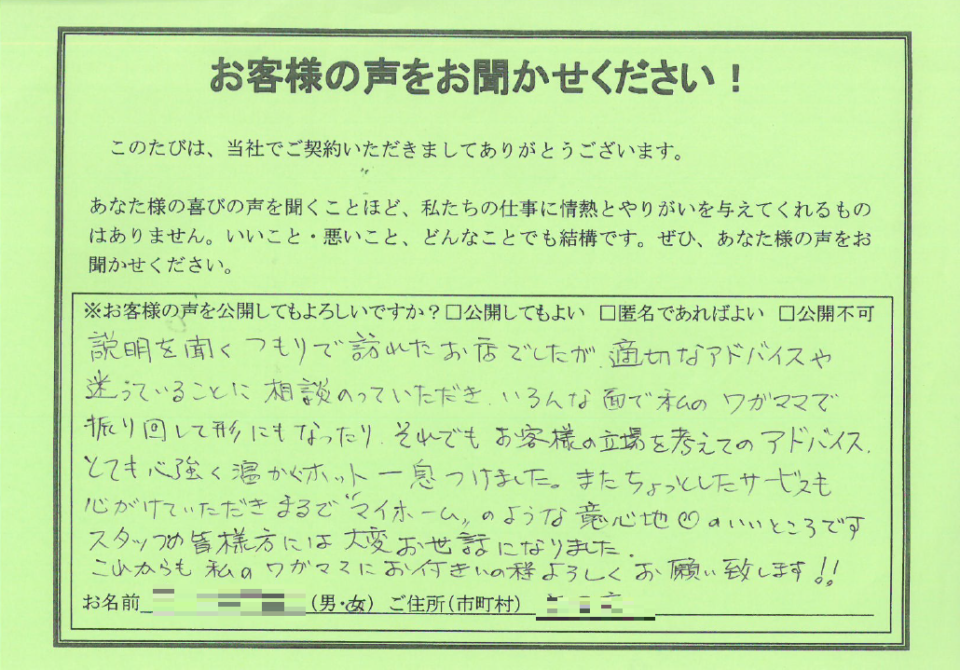 お客様の声をお聞かせください！
このたびは、当社でご契約いただきましてありがとうございます。
あなた様の喜びの声を聞くことほど、私たちの仕事に情熱とやりがいを与えてくれるもの
はありません。いいこと・悪いこと、どんなことでも結構です。ぜひ、あなた様の声をお
聞かせください。
※お客様の声を公開してもよろしいですか？□公開してもよい □匿名であればよい □公開不可
説明を聞くつもりで訪れたお店でしたが、適切なアドバイスや
迷っていることに相談のっていただき、いろんな面で私のワガママで
振り回して形にもなったり、それでもお客様の立場を考えてのアドバイス、
とても心強く温かくホット一息つけました。またちょっとしたサービスも
心がけていただきまるで"マイホーム"のような意心地のいいところです
スタッフの皆様方には大変お世話になりました。
これからも私のワガママにお付きいの程よろしくお願い致します!!
お名前 (男・女) ご住所(市町村)